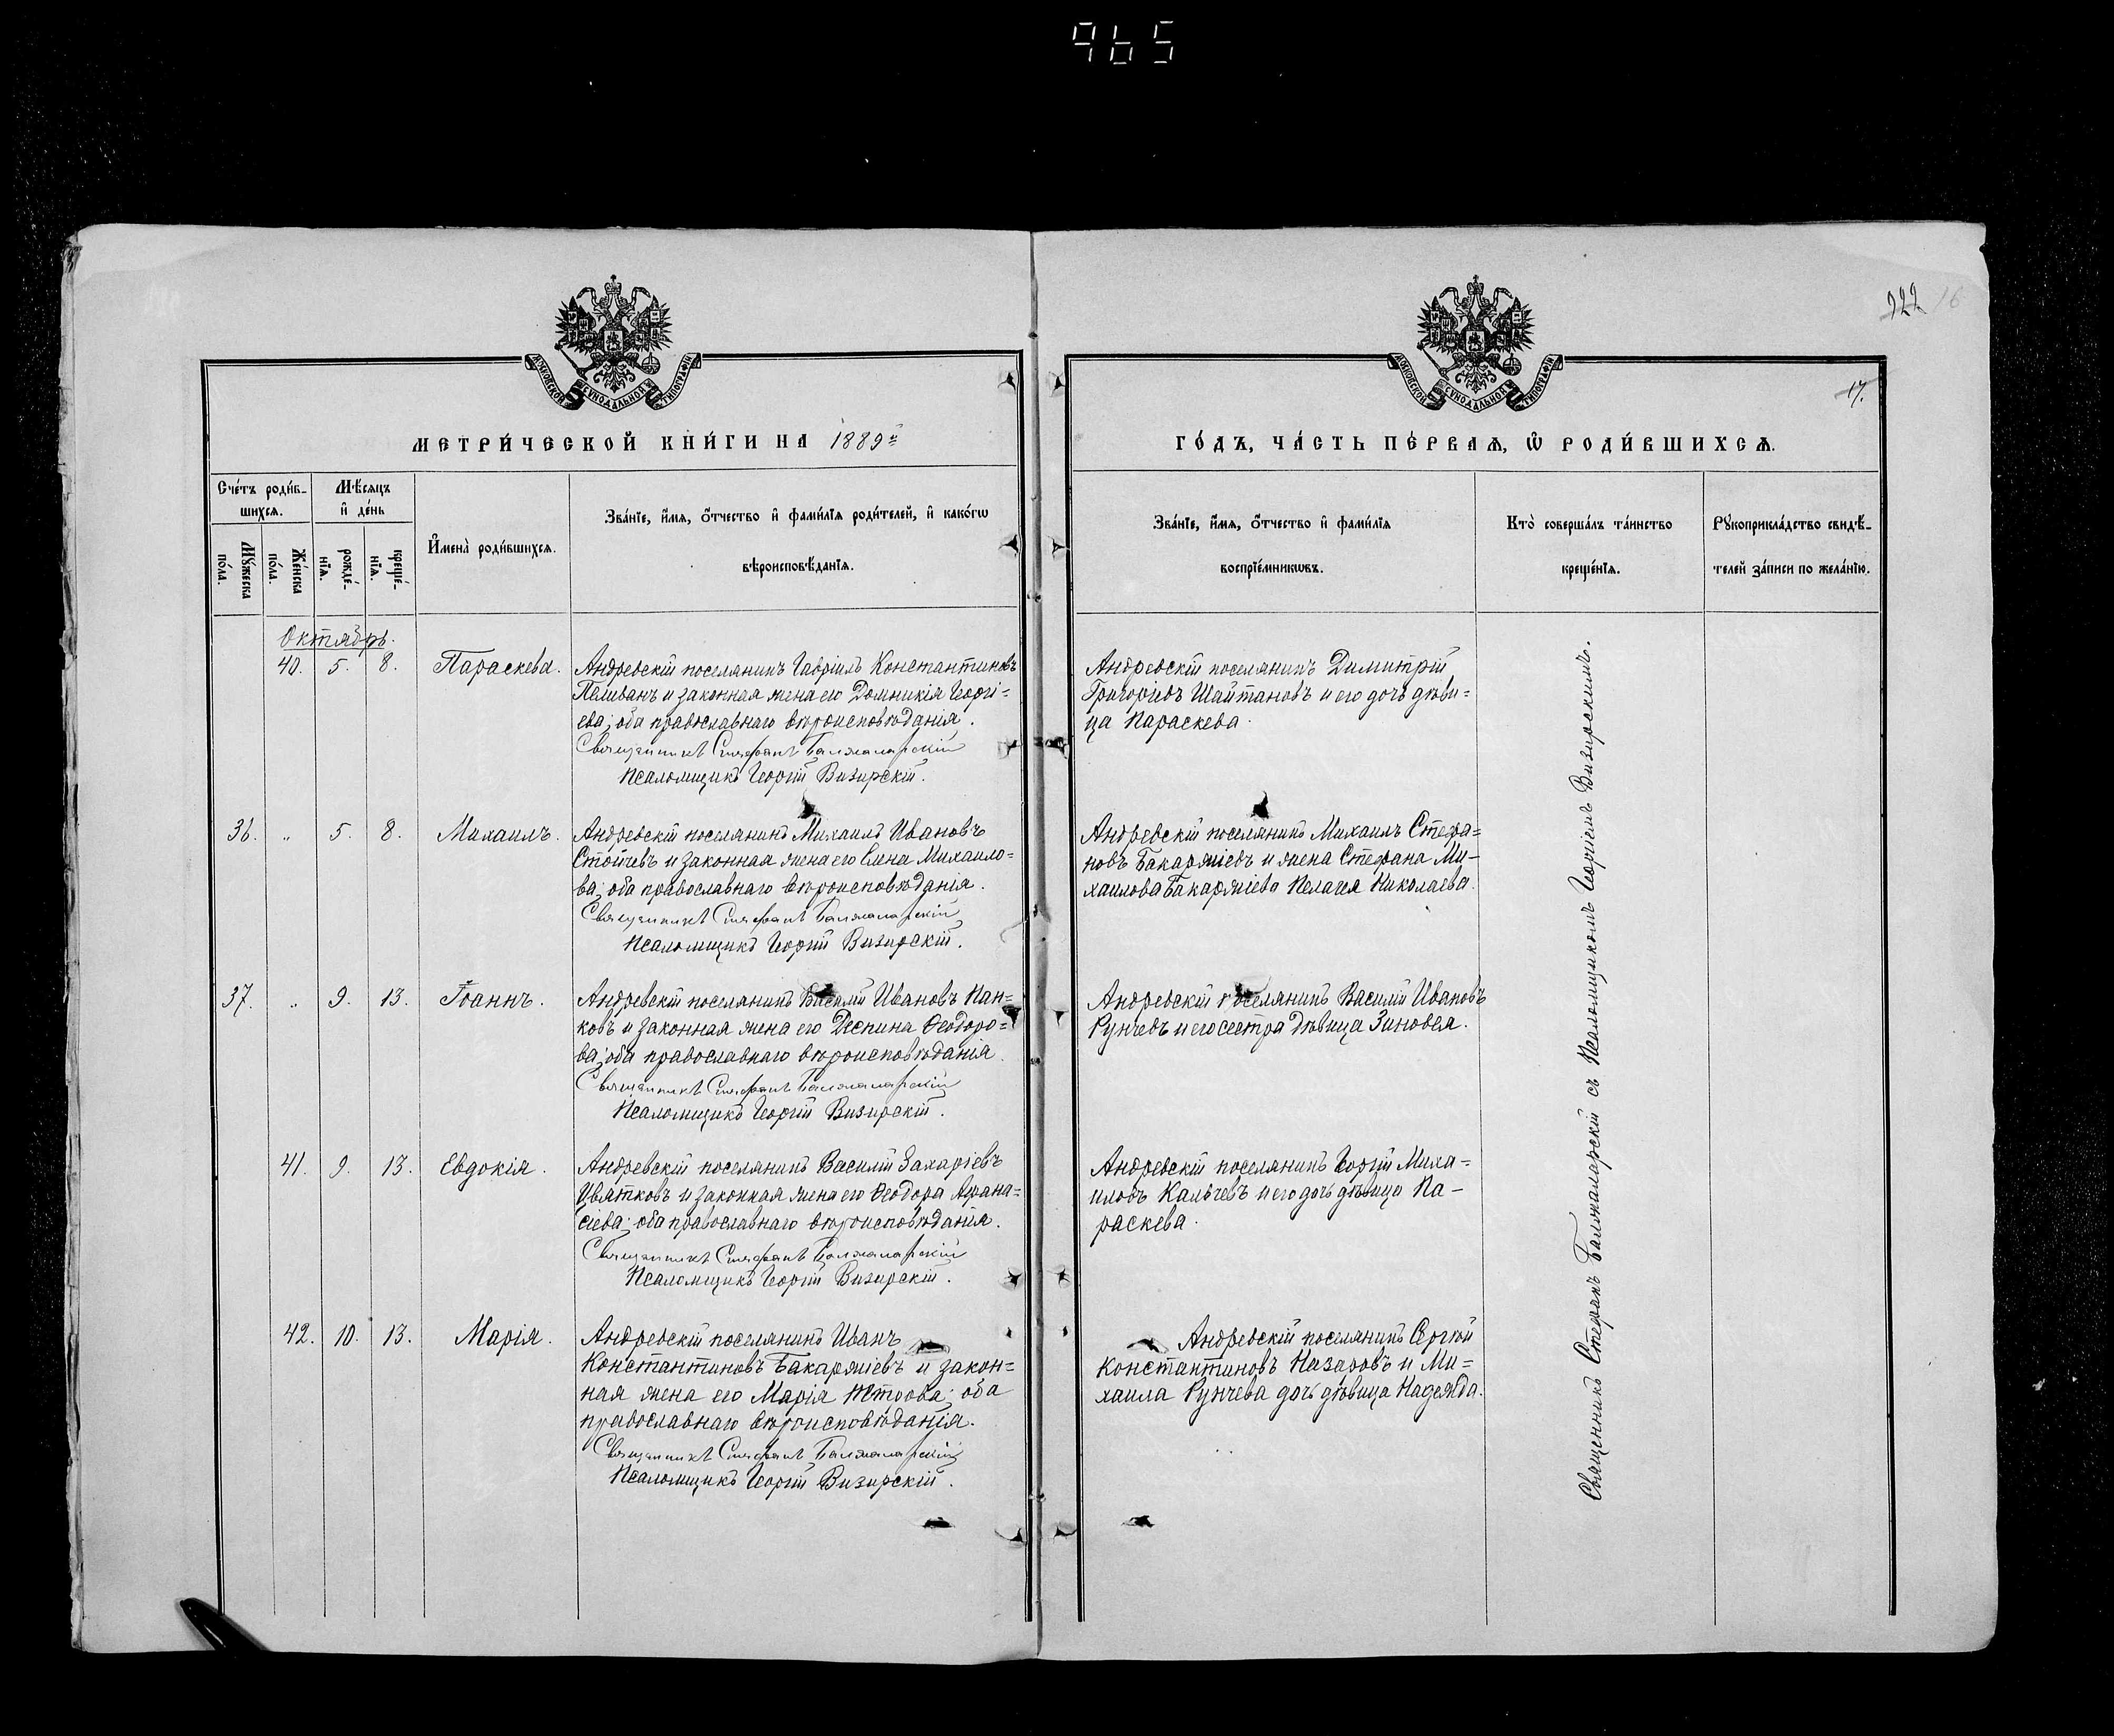 965
922 16
17.
МОСКОВСКОЙ СѴНОДАЛЬНОЙ ТИПОГРАФІИ
МОСКОВСКОЙ СѴНОДАЛЬНОЙ ТИПОГРАФІИ
МЕТРИ́ЧЕСКОЙ КНИ́ГИ НА 1889й
ГО́ДЪ, ЧА́СТЬ ПЕ́РВАЯ, Ѡ РОДИ́ВШИХСЯ.
Сче́тъ роди́в-
шихся.
Мѣ́сяцъ
и де́нь
Мꙋ́жеска
по́ла.
Же́нска
по́ла.
рожде́-
нїя.
креще́-
нїя.
Имена̀ роди́вшихся.
Зва́нїе, и́мя, о́тчество и фами́лїя роди́телей, и како́гѡ
вѣроисповѣ́данїя.
Зва́нїе, и́мя, о́тчество и фами́лїя
воспрїе́мникѡвъ.
Кто̀ соверша́лъ та́инство
креще́нїя.
Рꙋкоприкла́дство свидѣ́-
телей за́писи по жела́нїю.
Октябрь.
40. 5. 8. Параскева. Андревскій поселянинъ Гавріилъ Константиновъ
Пеливанъ и законная жена его Домникія Георгі=
ева; оба православнаго вѣроисповѣданія.
Священникъ Стефанъ Балжаларскій
Псаломщикъ Георгій Визирскій.
Андревскій поселянинъ Димитрій
Григоріевъ Шайтановъ и его дочь дѣви=
ца Параскева.
36. " 5. 8. Михаилъ. Андревскій поселянинъ Михаилъ Ивановъ
Стойчевъ и законная жена его Елена Михаило=
ва; оба православнаго вѣроисповѣданія.
Священникъ Стефанъ Балжаларскій
Псаломщикъ Георгій Визирскій.
Андревскій поселянинъ Михаилъ Стефа=
новъ Бакаржіевъ и жена Стефана Ми-
хаилова Бакаржіева Пелагея Николаева.
37. " 9. 13. Іоаннъ. Андревскій поселянинъ Василій Ивановъ Пан=
ковъ и законная жена его Деспина Ѳеодоро=
ва; оба православнаго вѣроисповѣданія.
Священникъ Стефанъ Балжаларскій
Псаломщикъ Георгій Визирскій.
Андревскій поселянинъ Василій Ивановъ
Рунчевъ и его сестра дѣвица Зиновея.
41. 9. 13. Евдокія. Андревскій поселянинъ Василій Захаріевъ
Цвятковъ и законная жена его Ѳеодора Афана=
сіева; оба православнаго вѣроисповѣданія.
Священникъ Стефанъ Балжаларскій
Псаломщикъ Георгій Визирскій.
Андревскій поселянинъ Георгій Миха=
иловъ Калчевъ и его дочь дѣвица Па-
раскева.
42. 10. 13. Марія. Андревскій поселянинъ Иванъ
Константиновъ Бакаржіевъ и закон=
ная жена его Марія Петрова; оба
православнаго вѣроисповѣданія.
Священникъ Стефанъ Балжаларскій
Псаломщикъ Георгій Визирскій.
Андревскій поселянинъ Сергѣй
Константиновъ Назаровъ и Ми=
хаила Рунчева дочь дѣвица Надежда.
Священникъ Стефанъ Балжаларскій съ Псаломщикомъ Георгіемъ Визирскимъ.